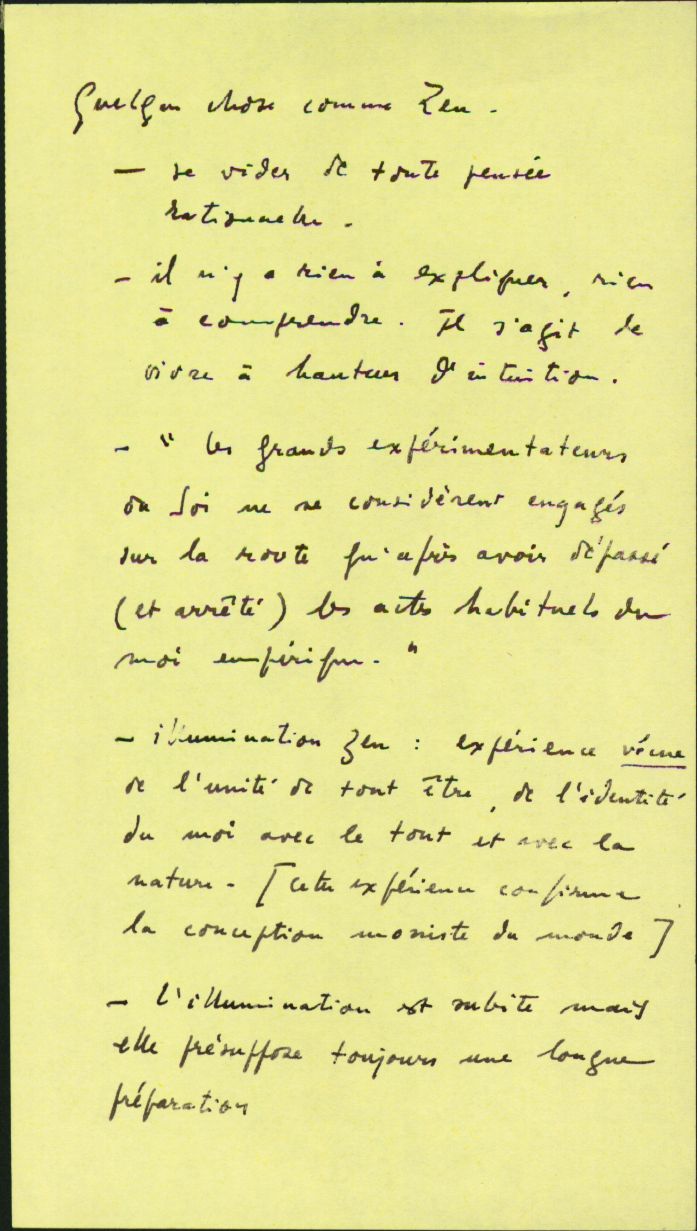 Quelque chose comme Zen.
– se vider de toute pensée
rationnelle.
– il n'y a rien à expliquer, rien
à comprendre. Il s'agit de
vivre à hauteur d'intuition.
– " les grands expérimentateurs
du Soi ne se considèrent engagés
sur la route qu'après avoir dépassé
(et arrêté) les actes habituels du
moi empirique. "
– illumination Zen : expérience vécue
de l'unité de tout être, de l'identité
du moi avec le tout et avec la
nature – [cette expérience confirme
la conception moniste du monde]
– l'illumination est subite mais
elle présuppose toujours une longue
préparation